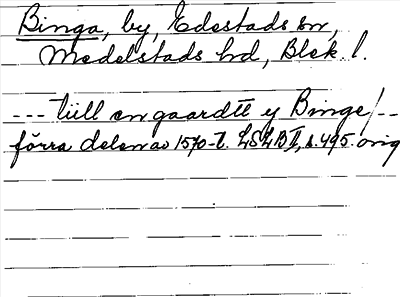 Binga, by, Edestads sn,
Medelstads hd, Blek. l.
--- till en gaardtt y Binge/--
förra delen av 1570-t. LSLB II, s. 495. orig